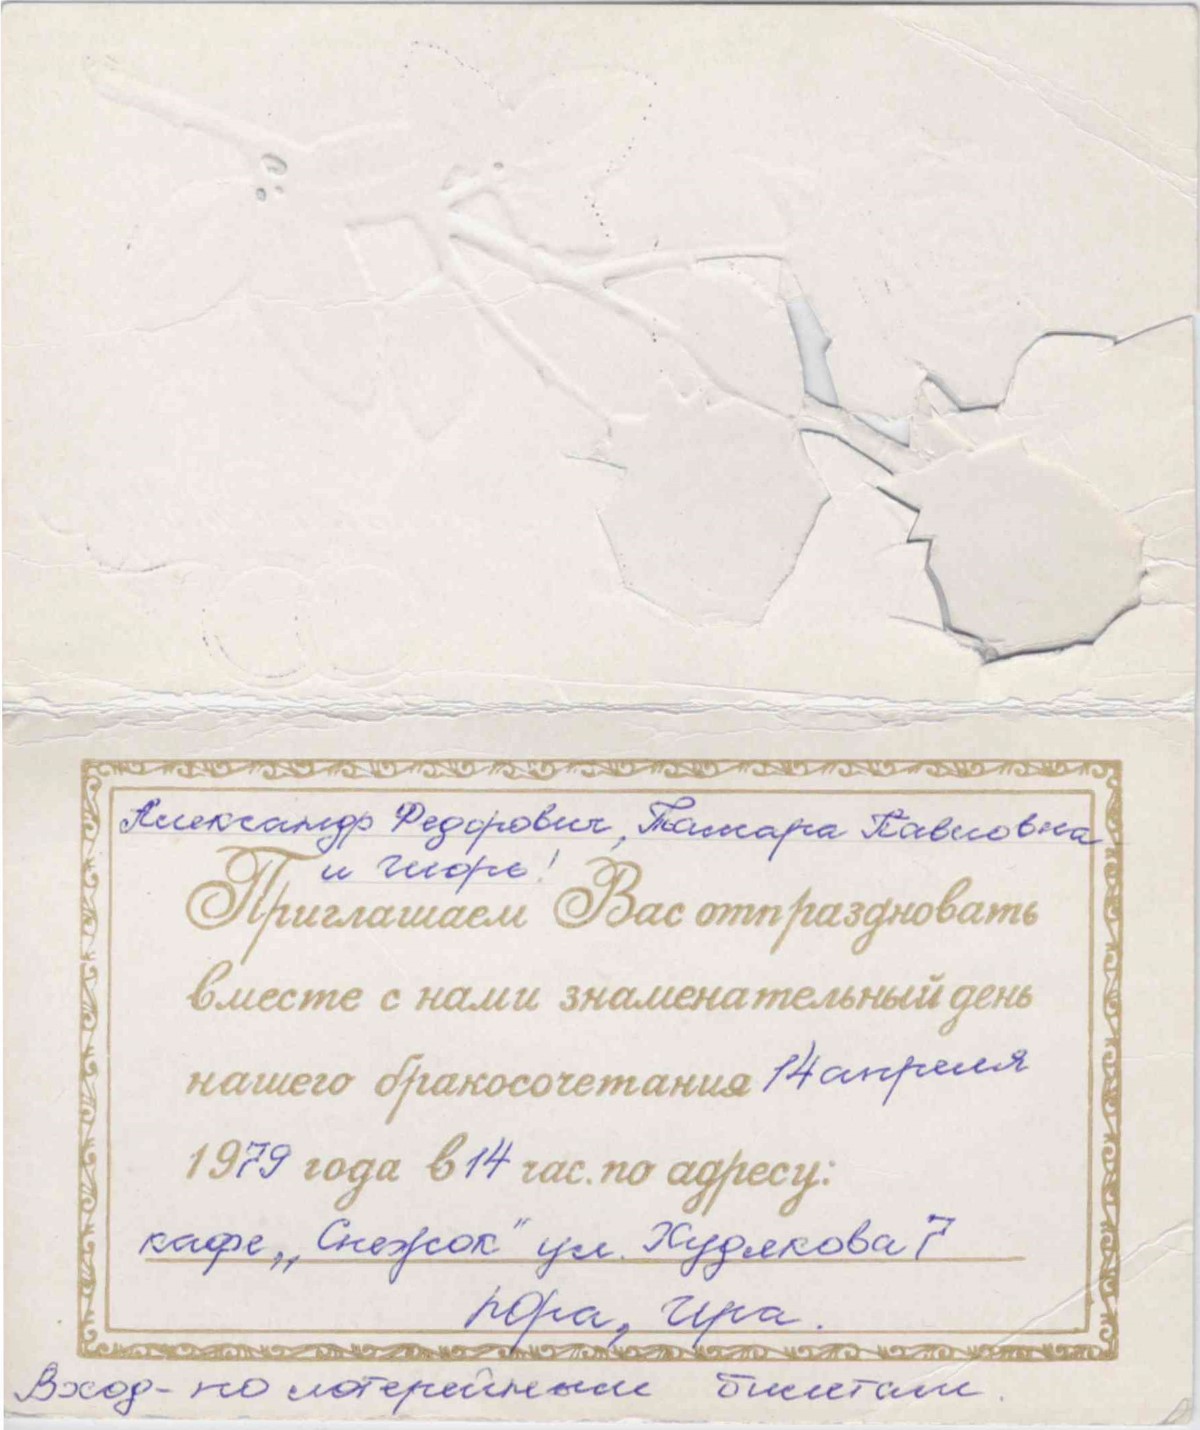 Александр Федорович, Тамара Павловна
и Игорь!
Приглашаем Вас отпраздновать
вместе с нами знаменательный день
нашего бракосочетания 14 апреля
1979 года в 14 час. по адресу:
кафе „Снежок" ул. Худякова 7
Юра, Ира.
Вход - по лотерейным билетам.